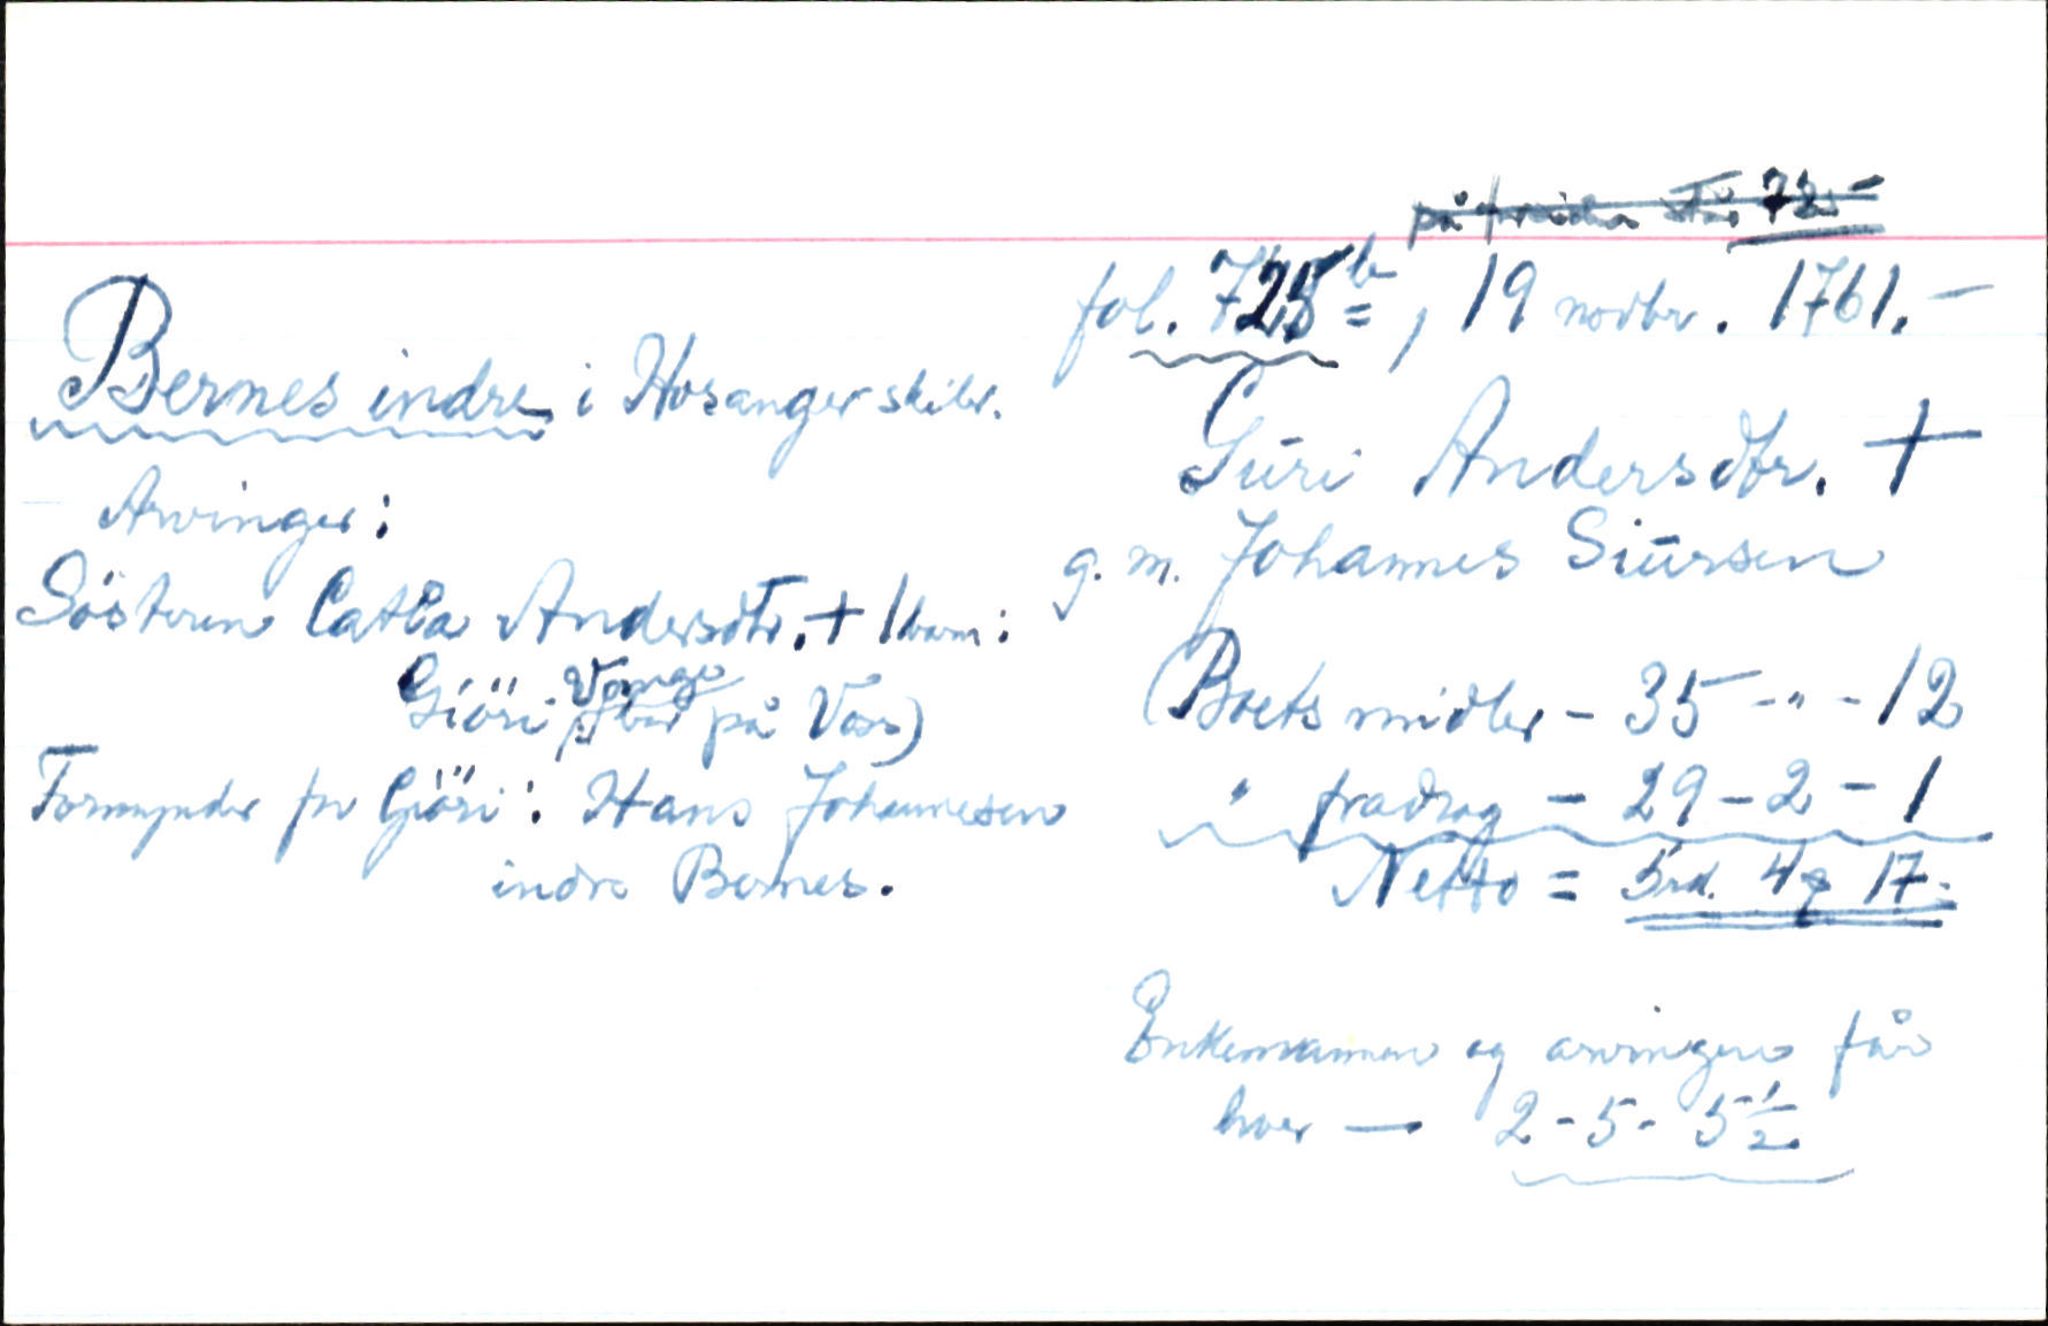 på
fol. 725b, 19 novbr. 1761.-
Bernes indre i Hosanger skibr.
Guri Andersdtr. +
Arvinger:
g. m. Johannes Siursen
Søsteren Catla Andersdtr. + 1 barn:
Giöri Vonge på Voss)
(Boets midler - 35 - " - 12
Formynder for Giöri: Hans Johannesen
" fradrag - 29 - 2 - 1
indre Bernes.
Netto = 5 rd. 4 17
Enkemannen og arvingen får
hver - 2 - 5 - 5 1/2